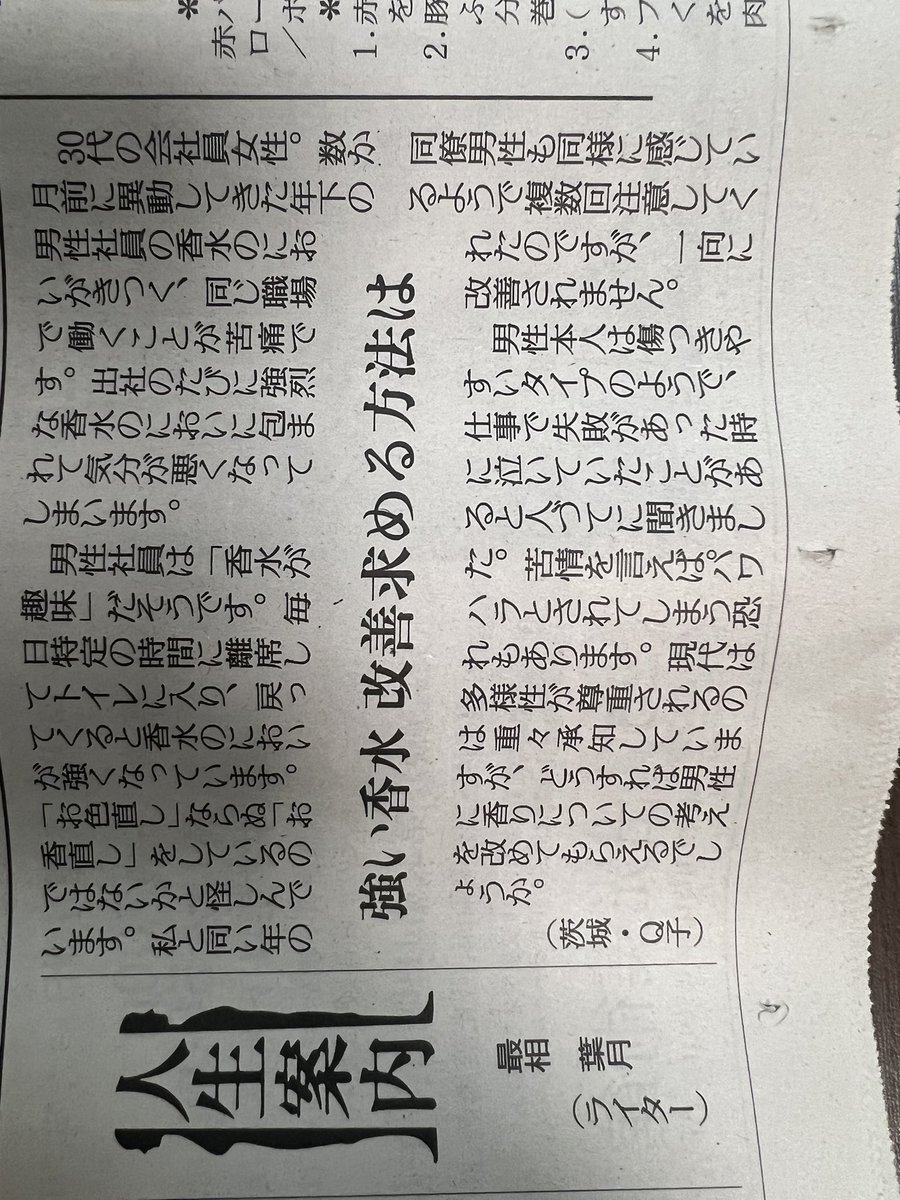 1. 赤
2. 豚
3.
4.
30代の会社員女性。数か
月前に異動してきた年下の
男性社員の香水のにお
いがきつく、同じ職場
で働くことが苦痛で
す。出社のたびに強烈
な香水のにおいに包ま
れて気分が悪くなって
しまいます。
男性社員は「香水が
趣味」だそうです。毎
日特定の時間に離席し
てトイレに入り、戻っ
てくると香水のにおい
が強くなっています。
「お色直し」ならぬ「お
香直し」をしているの
ではないかと怪しんで
います。私と同い年の
強い香水 改善求める方法は
同僚男性も同様に感じてい
るようで複数回注意してく
れたのですが、一向に
改善されません。
男性本人は傷つきや
すいタイプのようで、
仕事で失敗があった時
に泣いていたことがあ
ると人づてに聞きまし
た。苦情を言えばパワ
ハラとされてしまう恐
れもあります。現代は
多様性が尊重されるの
は重々承知していま
すが、どうすれば男性
に香りについての考え
を改めてもらえるでし
ょうか。
(茨城・Q子)
人生案内
最相 葉月
(ライター)